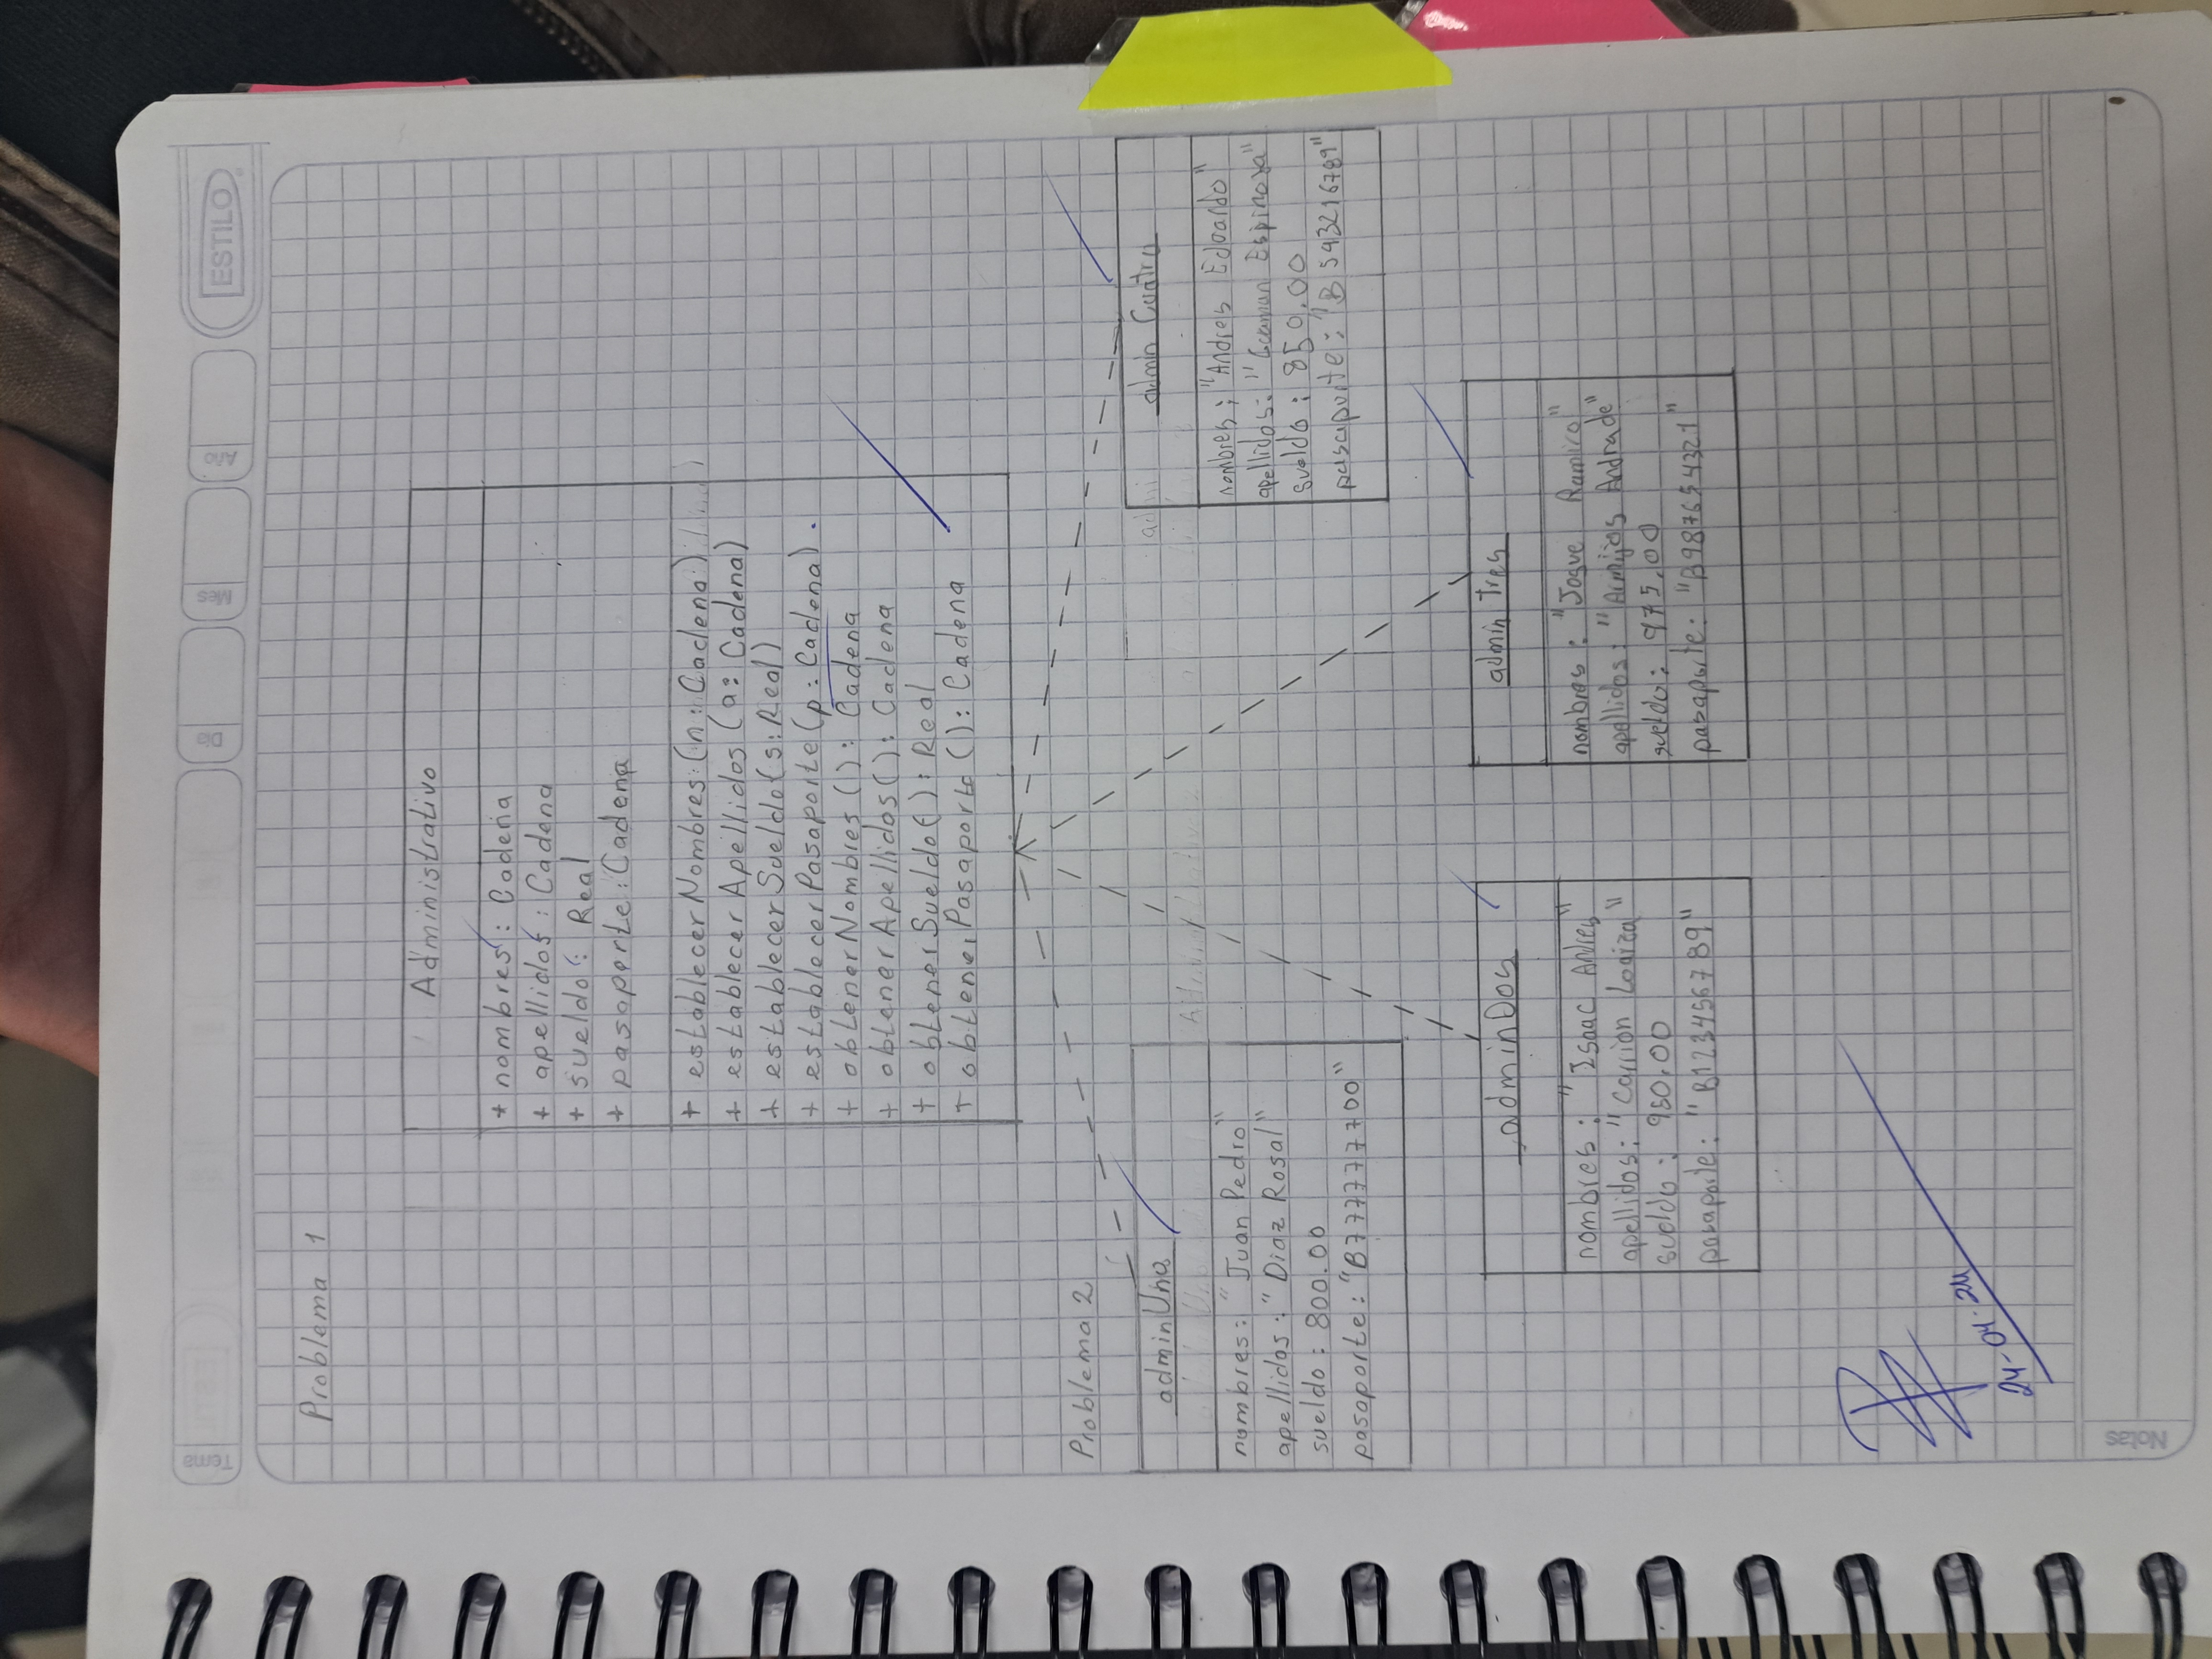 Tema
Día
Mes
Año
ESTILO
Problema 1
Administrativo
+ nombres: Cadena
+ apellidos: Cadena
+ sueldo: Real
+ pasaporte: Cadena
+ establecerNombres(n: Cadena)
+ establecerApellidos(a: Cadena)
+ establecerSueldo(s: Real)
+ establecerPasaporte(p: Cadena).
+ obtenerNombres(): Cadena
+ obtenerApellidos(): Cadena
+ obtenerSueldo(): Real
+ obtenerPasaporte(): Cadena
Problema 2
adminUno
nombres: "Juan Pedro"
apellidos: "Diaz Rosal"
sueldo: 800.00
pasaporte: "B777777700"
admin Cuatro
nombres: "Andres Eduardo"
apellidos: "Guaman Espinoza"
sueldo: 850.00
pasaporte: "B543216789"
adminDos
nombres: "Isaac Andres"
apellidos: "Carrion Loaiza"
sueldo: 950.00
pasaporte: "B123456789"
admin Tres
nombres: "Josue Ramiro"
apellidos: "Armijos Andrade"
sueldo: 975.00
pasaporte: "B987654321"
24-04-24
Notas